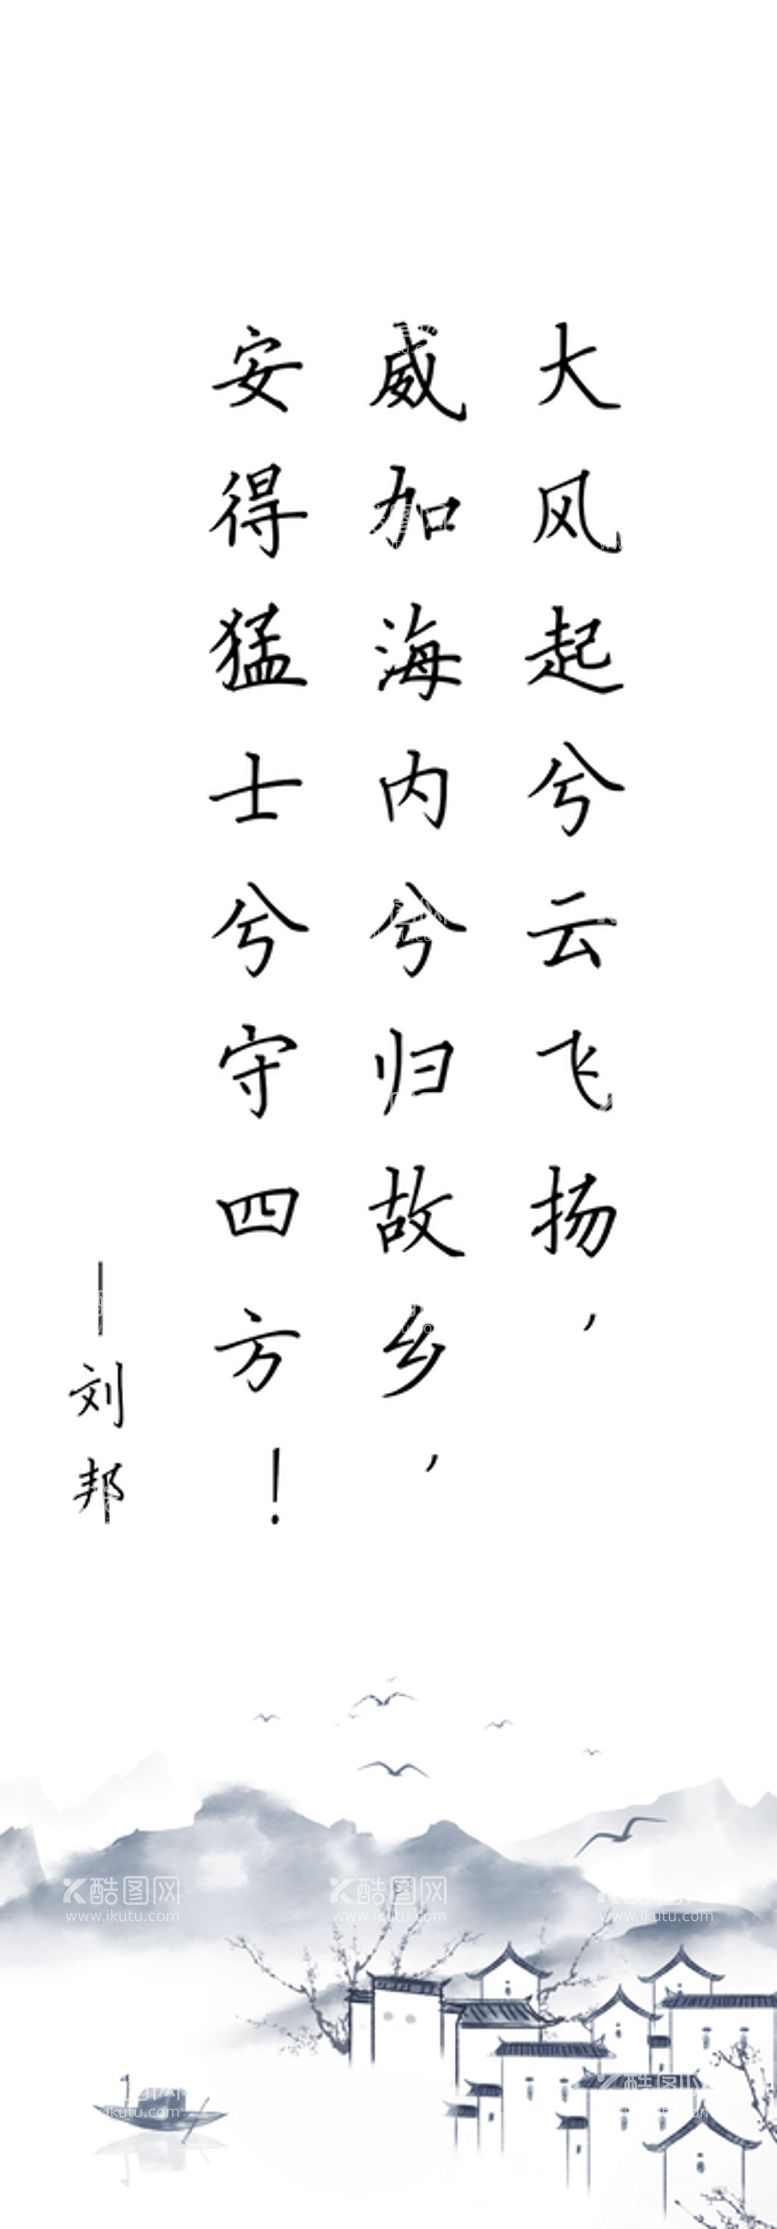 大风起兮云飞扬，
威加海内兮归故乡，
安得猛士兮守四方！
——刘邦
K酷图网 K酷图网 K酷图网
www.ikutu.com www.ikutu.com www.ikutu.com